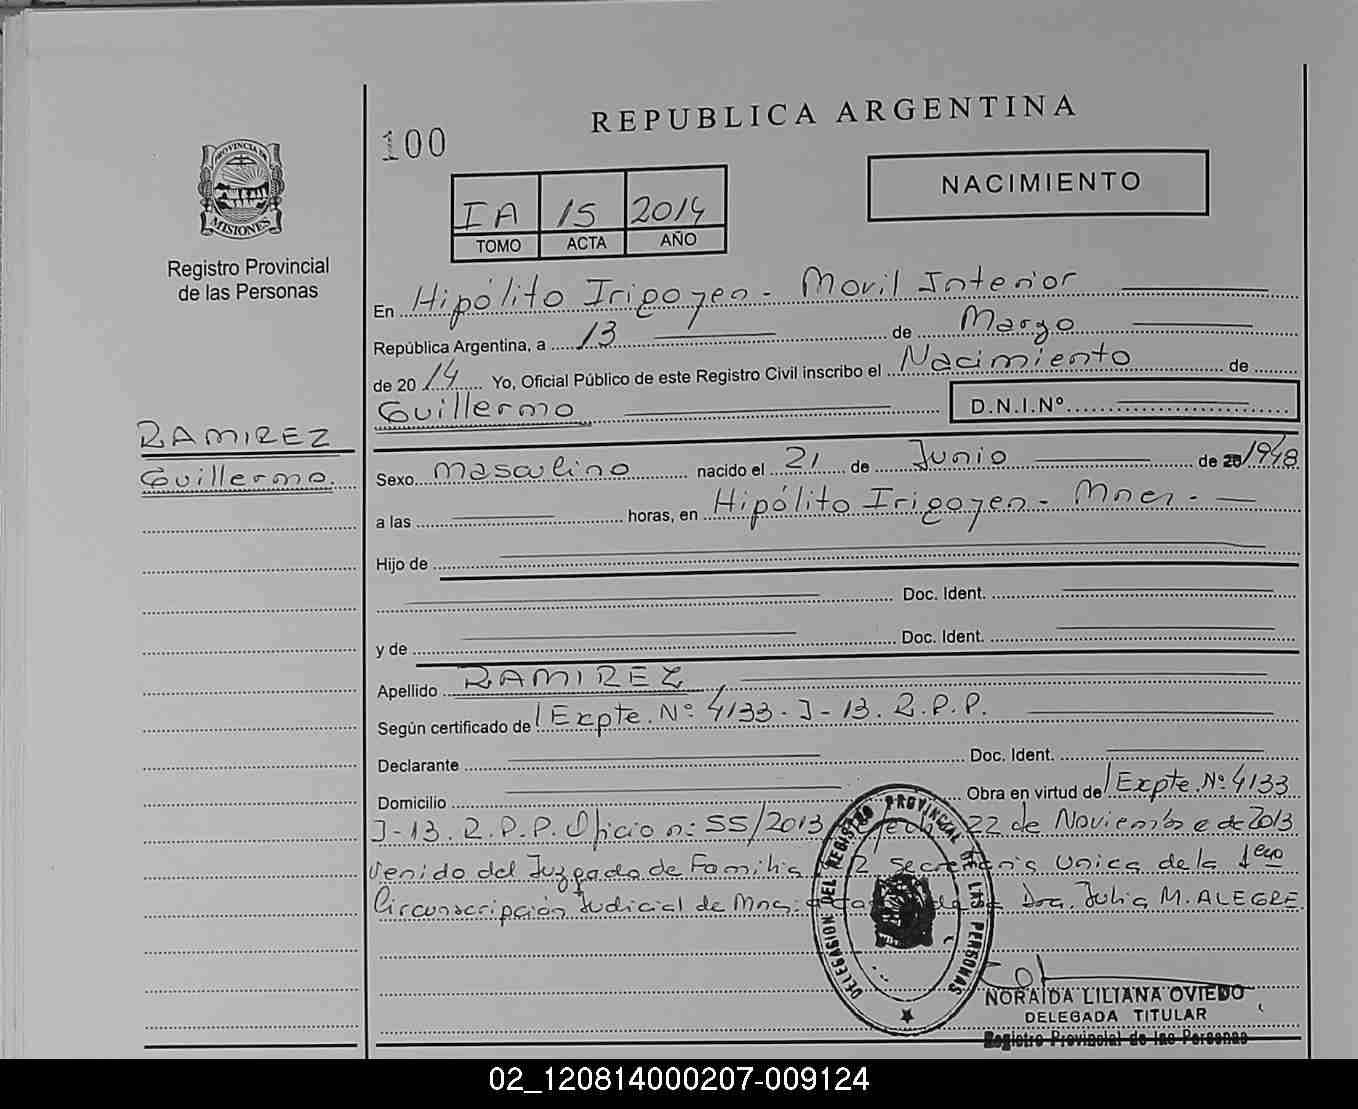 REPUBLICA ARGENTINA
100
NACIMIENTO
IA 15 2014
TOMO ACTA AÑO
PROVINCIA DE
MISIONES
Registro Provincial
de las Personas
En Hipólito Irigoyen - Movil Interior
República Argentina, a 13 de Marzo
de 20 14 Yo, Oficial Público de este Registro Civil inscribo el Nacimiento de
Guillermo D.N.I.Nº
RAMIREZ
Guillermo.
Sexo Masculino nacido el 21 de Junio de 20 1948
a las horas, en Hipólito Irigoyen - Mnes -
Hijo de
Doc. Ident.
y de Doc. Ident.
Apellido RAMIREZ
Según certificado de Expte. Nº 4133 - J - 13. R.P.P.
Declarante Doc. Ident.
Domicilio Obra en virtud de Expte. Nº 4133
J-13. R.P.P. Oficio nº 55/2013 fecha 22 de Noviembre de 2013
Venido del Juzgado de Familia 2 Secretaria Unica de la 1era
Circunscripción Judicial de Mnes. Dra. Julia M. ALEGRE
DELEGACION DEL REGISTRO PROVINCIAL DE LAS PERSONAS
NORAIDA LILIANA OVIEDO
DELEGADA TITULAR
Registro Provincial de las Personas
02_120814000207-009124